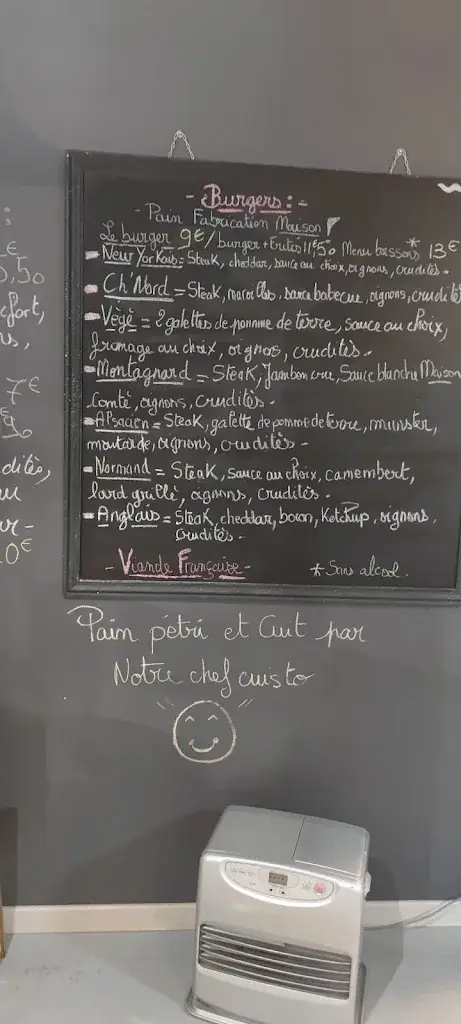 - Burgers : -
- Pain Fabrication Maison
Le burger 9€ / burger + frites 11€50 Menu boisson* 13€
- New Yorkais = Steak, cheddar, sauce au choix, oignons, crudités.
- Ch'Nord = Steak, maroilles, sauce barbecue, oignons, crudités
- Végé = 2 galettes de pomme de terre, sauce au choix,
fromage au choix, oignos, crudités.
- Montagnard = Steak, Jambon cru, Sauce blanche Maison
Comté, oignons, crudités.
- Alsacien = Steak, galette de pomme de terre, munster,
moutarde, oignons, crudités.
- Normand = Steak, sauce au choix, camembert,
lard grillé, oignons, crudités.
- Anglais = Steak, cheddar, bacon, Ketchup, oignons,
crudités.
- Viande Française -
* Sans alcool.
Pain pétri et Cuit par
Notre chef cuisto
:
€
,50
fort,
7€
dités,
au
0€